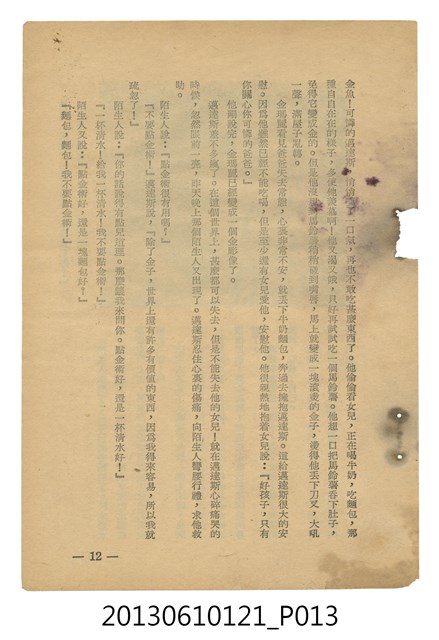 金魚!可憐的邁達斯,悄悄嘆了一口氣,再也不敢吃甚麼東西了。他偷偷看女兒,正在喝牛奶,吃麵包,那
種自自在在的樣子,多使他羨慕啊!他又渴又餓,只好再試試吃一個馬鈴薯。他想一口把馬鈴薯吞下肚子,
免得它變成金的。但是他沒 馬鈴薯 到嘴唇,馬上就變成一塊滾燙的金子,燙得他丟下刀叉,大吼
一聲,滿屋子亂轉。
金瑪麗看見爸爸失去常態,心裏非常不安,就丟下牛奶麵包,奔過去擁抱邁達斯。這給邁達斯很大的安
慰。因爲他雖然已經不能吃喝,但是至少還有女兒愛他,安慰他。他很親熱地抱着女兒說:『好孩子,只有
你關心你可憐的爸爸。』
他剛說完,金瑪麗已經變成一個金影像了。
邁達斯差不多瘋了。在這個世界上,甚麼都可以失去,但是不能失去他的女兒!就在邁達斯心碎痛哭的
時候,忽然眼前一亮,昨天晚上那個陌生人又出現了。邁達斯忍住心裏的傷痛,向陌生人彎腰行禮,求他救
助。
陌生人說:『點金術很有用嗎?』
『不要點金術!』邁達斯說,『除了金子,世界上還有許多有價值的東西,因爲我得來容易,所以我就
疏忽了!』
陌生人說:『你的話說得有點兒道理。那麼讓我來問你。點金術好,還是一杯清水好!』
『一杯清水!給我一杯清水!我不要點金術!』
陌生人又說:『點金術好,還是一塊麵包好?』
『麵包,麵包!我不要點金術!』
— 12 —
20130610121_P013